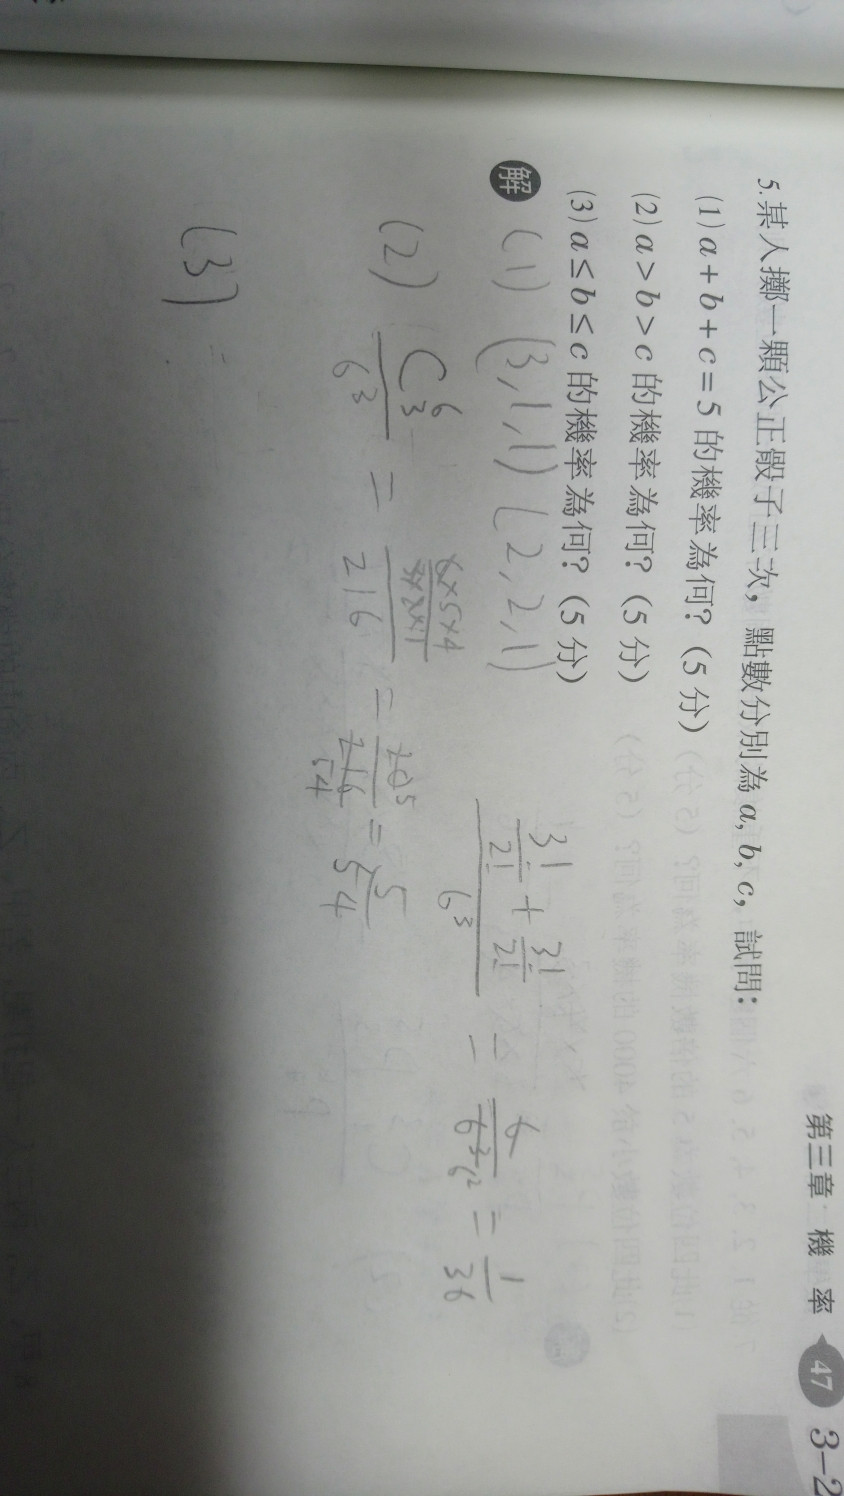 第三章 機 率 47 3-2
5. 某人擲一顆公正骰子三次，點數分別為 a, b, c，試問：
(1) a + b + c = 5 的機率為何？(5 分)
(2) a > b > c 的機率為何？(5 分)
(3) a ≤ b ≤ c 的機率為何？(5 分)
解 (1) (3,1,1) (2,2,1)
(3!/2! + 3!/2!)/6³ = 6/6³ 6² = 1/36
(2) C⁶₃/6³ = (6×5×4/3×2×1)/216 = 20 5/216 54 = 5/54
(3)